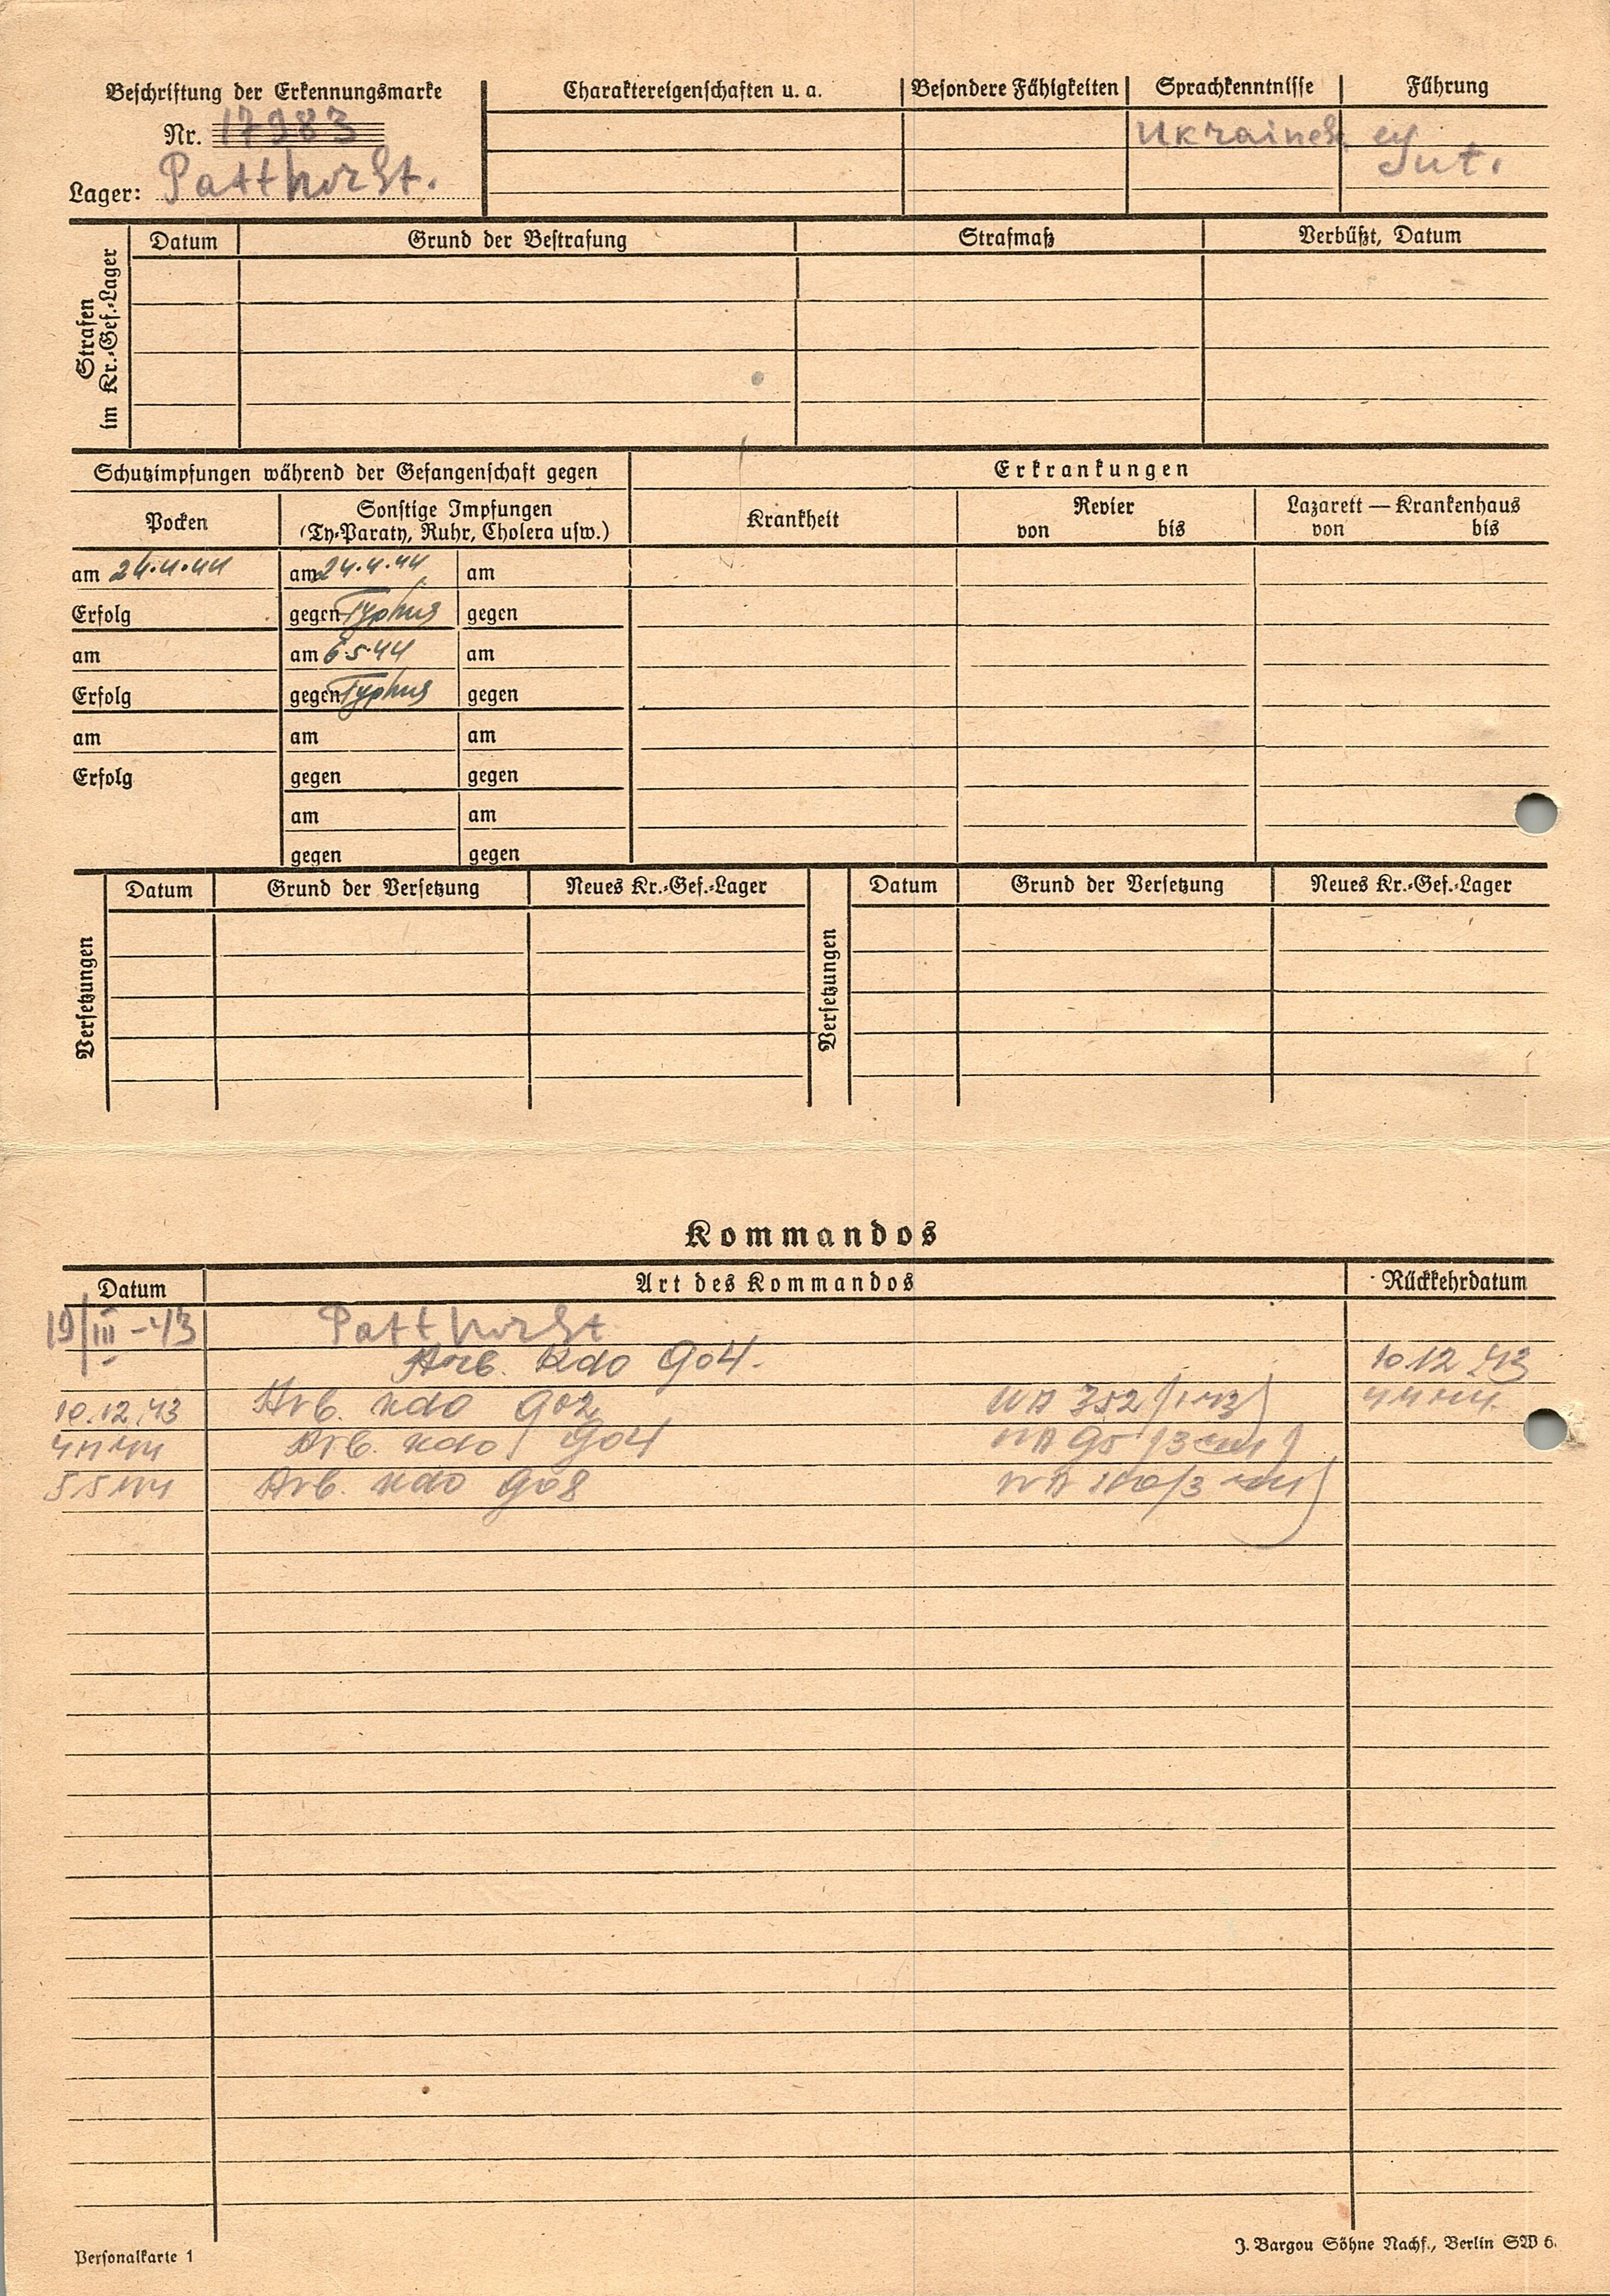 Beschriftung der Erkennungsmarke
Nr. 17983
Lager: Patthorst.
Charaktereigenschaften u. a.
Besondere Fähigkeiten
Sprachkenntnisse
Führung
Gut.
Strafen im Kr.-Gef.-Lager
Datum Grund der Bestrafung Strafmaß Verbüßt, Datum
Schutzimpfungen während der Gefangenschaft gegen
Erkrankungen
Pocken
Sonstige Impfungen
(Ty-Paraty, Ruhr, Cholera usw.)
Krankheit
Revier
von bis
Lazarett — Krankenhaus
von bis
am 24.4.44 am 24.4.44 am
Erfolg gegen Typhus gegen
am am 6.5.44 am
Erfolg gegen Typhus gegen
am am am
Erfolg gegen gegen
am am
gegen gegen
Versetzungen
Datum Grund der Versetzung Neues Kr.-Gef.-Lager
Versetzungen
Datum Grund der Versetzung Neues Kr.-Gef.-Lager
Kommandos
Datum Art des Kommandos Rückkehrdatum
19/III-43 Patthorst
Arb. Kdo 904. 10.12.43
10.12.43 Arb. Kdo 902
Arb. Kdo 904
5.5.44 Arb. Kdo 908
Personalkarte 1
J. Bargou Söhne Nachf., Berlin SW 6.